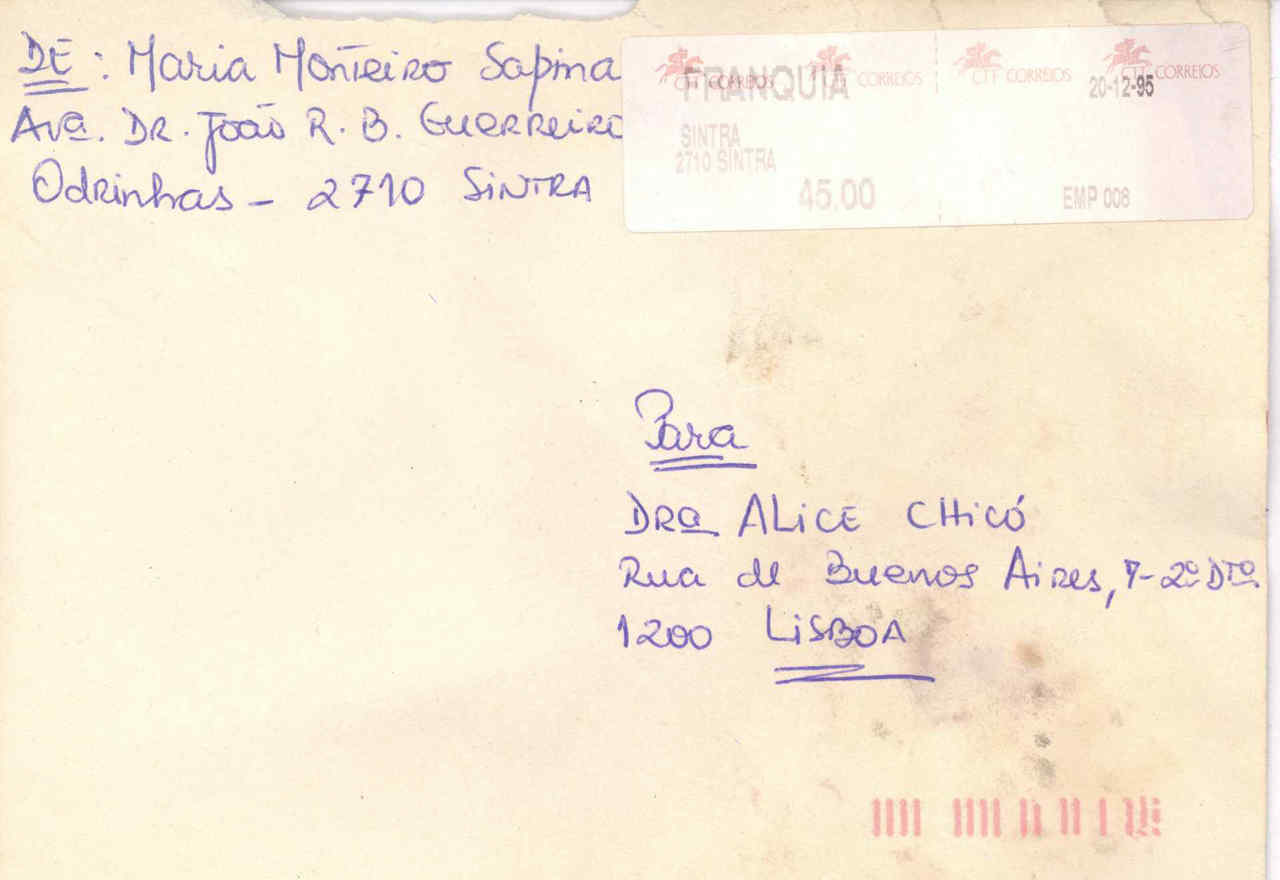 DE: Maria Monteiro Sapina
Avª. DR. João R. B. Guerreiro
Odrinhas - 2710 SINTRA
CTT CORREIOS CTT CORREIOS CTT CORREIOS CTT CORREIOS
FRANQUIA 20-12-95
SINTRA
2710 SINTRA
45.00 EMP 008
Para
DRª ALICE CHICÓ
Rua de Buenos Aires, 7-2º DTº
1200 LISBOA